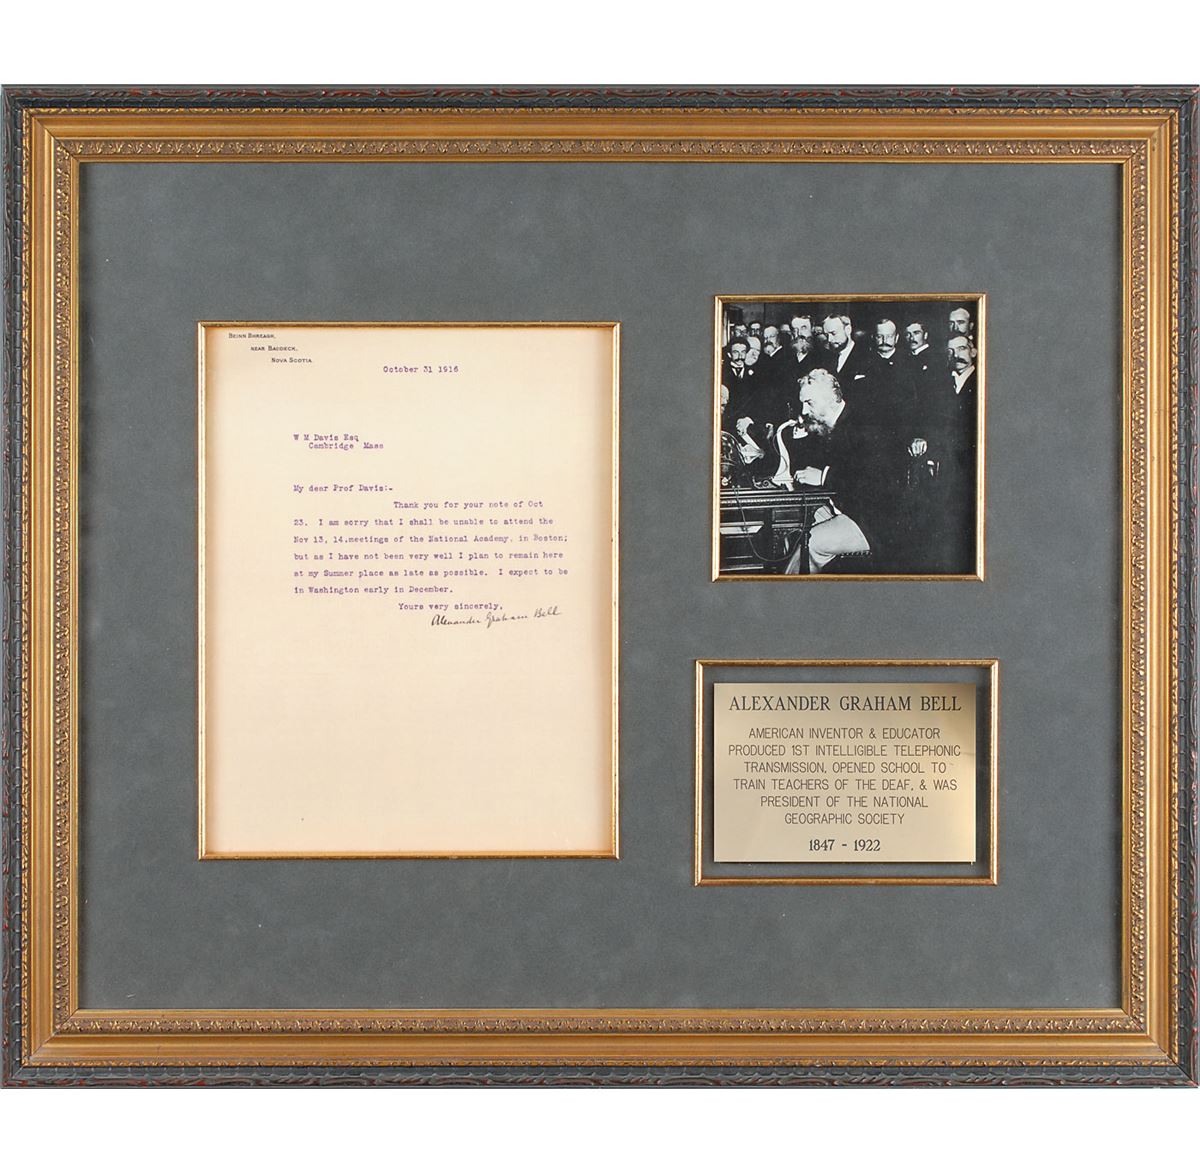 BEINN BHREAGH,
NEAR BADDECK,
NOVA SCOTIA.
October 31 1916
W M Davis Esq
Cambridge Mass
My dear Prof Davis:-
Thank you for your note of Oct
23. I am sorry that I shall be unable to attend the
Nov 13, 14.meetings of the National Academy, in Boston;
but as I have not been very well I plan to remain here
at my Summer place as late as possible. I expect to be
in Washington early in December.
Yours very sincerely,
Alexander Graham Bell
ALEXANDER GRAHAM BELL
AMERICAN INVENTOR & EDUCATOR
PRODUCED 1ST INTELLIGIBLE TELEPHONIC
TRANSMISSION, OPENED SCHOOL TO
TRAIN TEACHERS OF THE DEAF, & WAS
PRESIDENT OF THE NATIONAL
GEOGRAPHIC SOCIETY
1847 - 1922